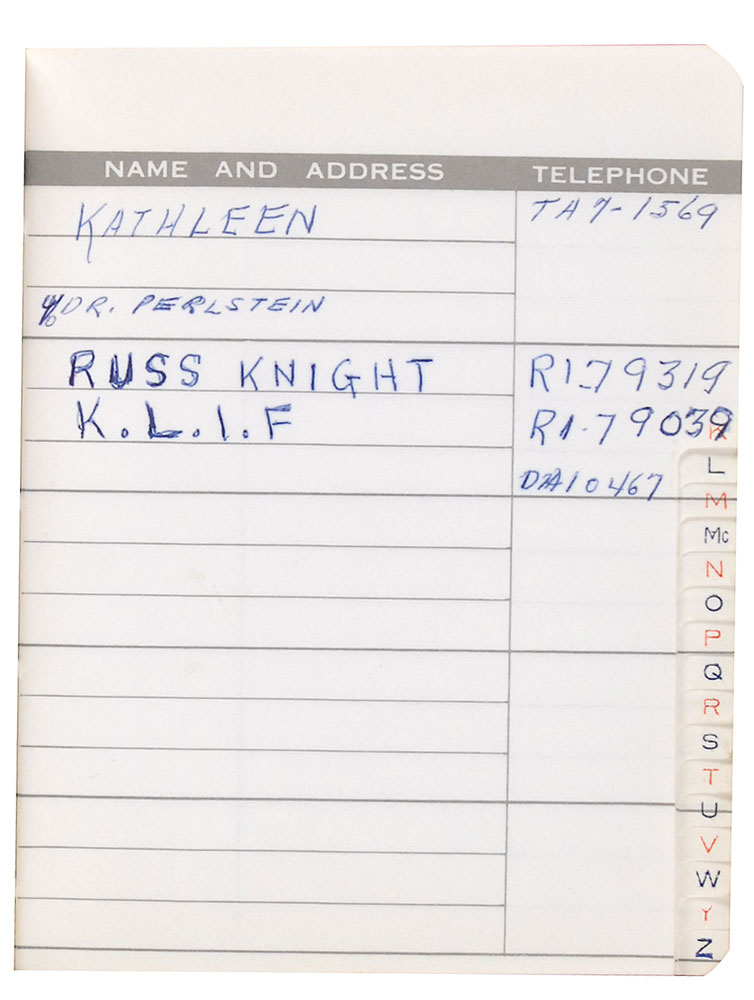 NAME AND ADDRESS TELEPHONE
KATHLEEN TA7-1569
c/o DR. PERLSTEIN
RUSS KNIGHT RI-79319
K.L.I.F RI-79039
DA10467
K
L
M
Mc
N
O
P
Q
R
S
T
U
V
W
Y
Z